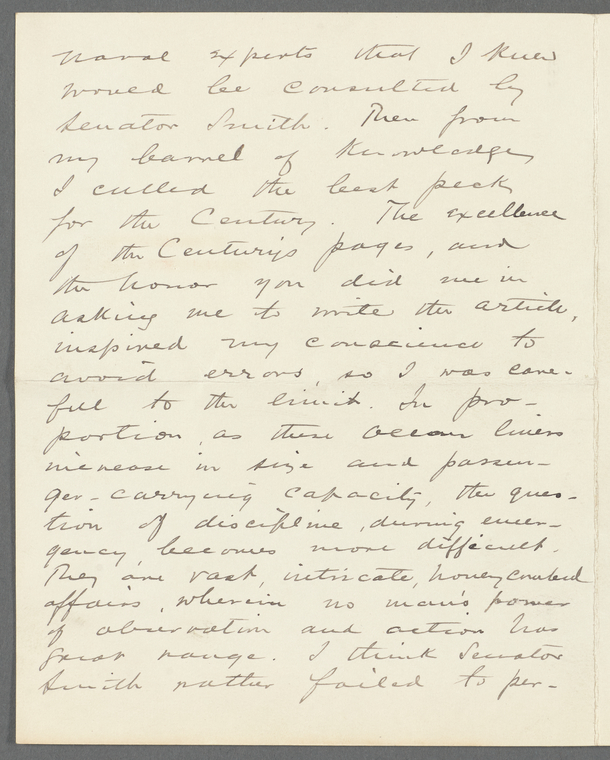 naval experts that I knew
would be consulted by
Senator Smith. Then from
my barrel of knowledge,
I culled the best peck,
for the Century. The excellence
of the Century's pages, and
the honor you did me in
asking me to write the article,
inspired my conscience to
avoid errors, so I was care-
ful to the limit. In pro-
portion, as these ocean liners
increase in size and passen-
ger-carrying capacity, the ques-
tion of discipline, during emer-
gency, becomes more difficult.
They are vast, intricate, honeycombed
affairs, wherein no man's power
of observation and action has
great range. I think Senator
Smith rather failed to per-